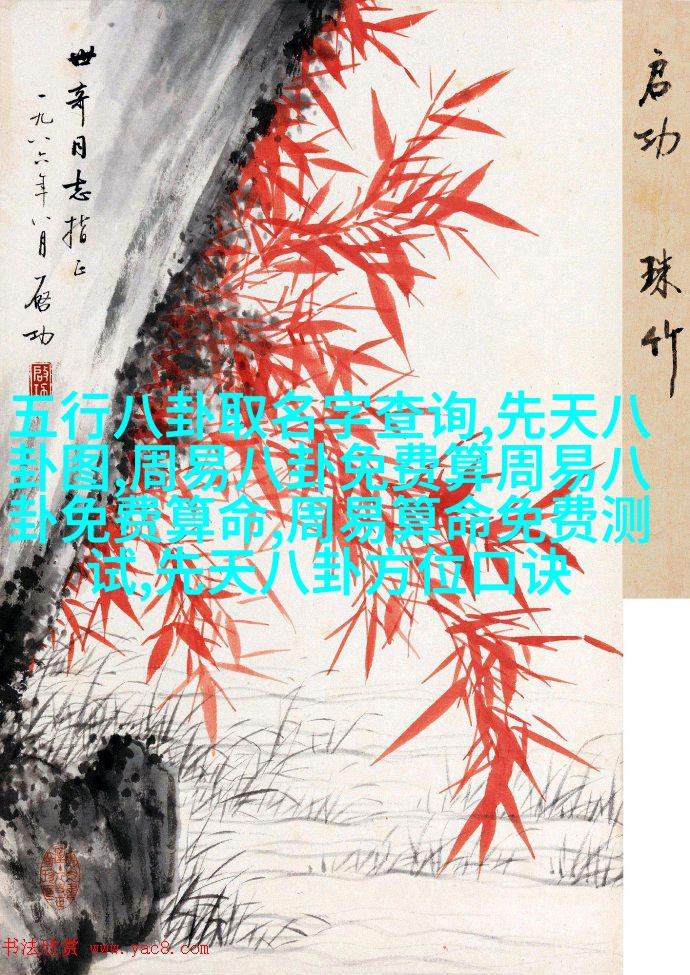 世奇同志指正
一九八六年八月 启功
启功 珠竹
五行八卦取名字查询,先天八
卦图,周易八卦免费算周易八
卦免费算命,周易算命免费测
试,先天八卦方位口诀
书法欣赏 www.yac8.com